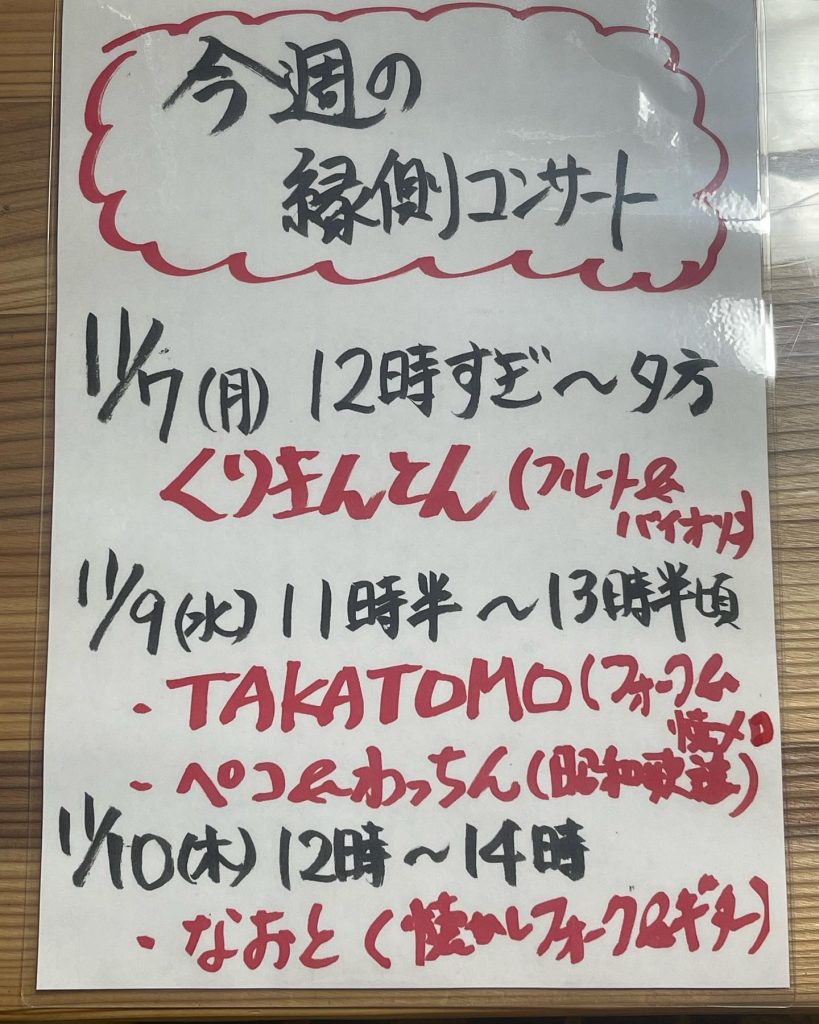 今週の
縁側コンサート
11/7(月) 12時すぎ～夕方
くりきんとん(フルート&
バイオリン)
11/9(水) 11時半～13時半頃
・TAKATOMO(フォーク&
懐メロ
・ペコ&わっちん(昭和歌謡)
11/10(木) 12時～14時
・なおと(懐かしフォーク&ギター)